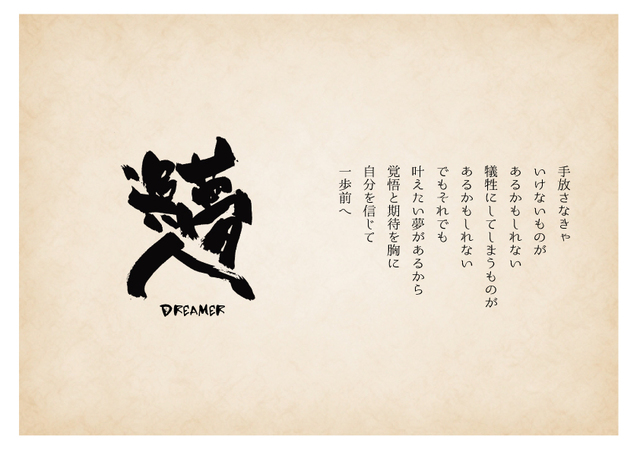 手放さなきゃ
いけないものが
あるかもしれない
犠牲にしてしまうものが
あるかもしれない
でもそれでも
叶えたい夢があるから
覚悟と期待を胸に
自分を信じて
一歩前へ
夢
人
DREAMER